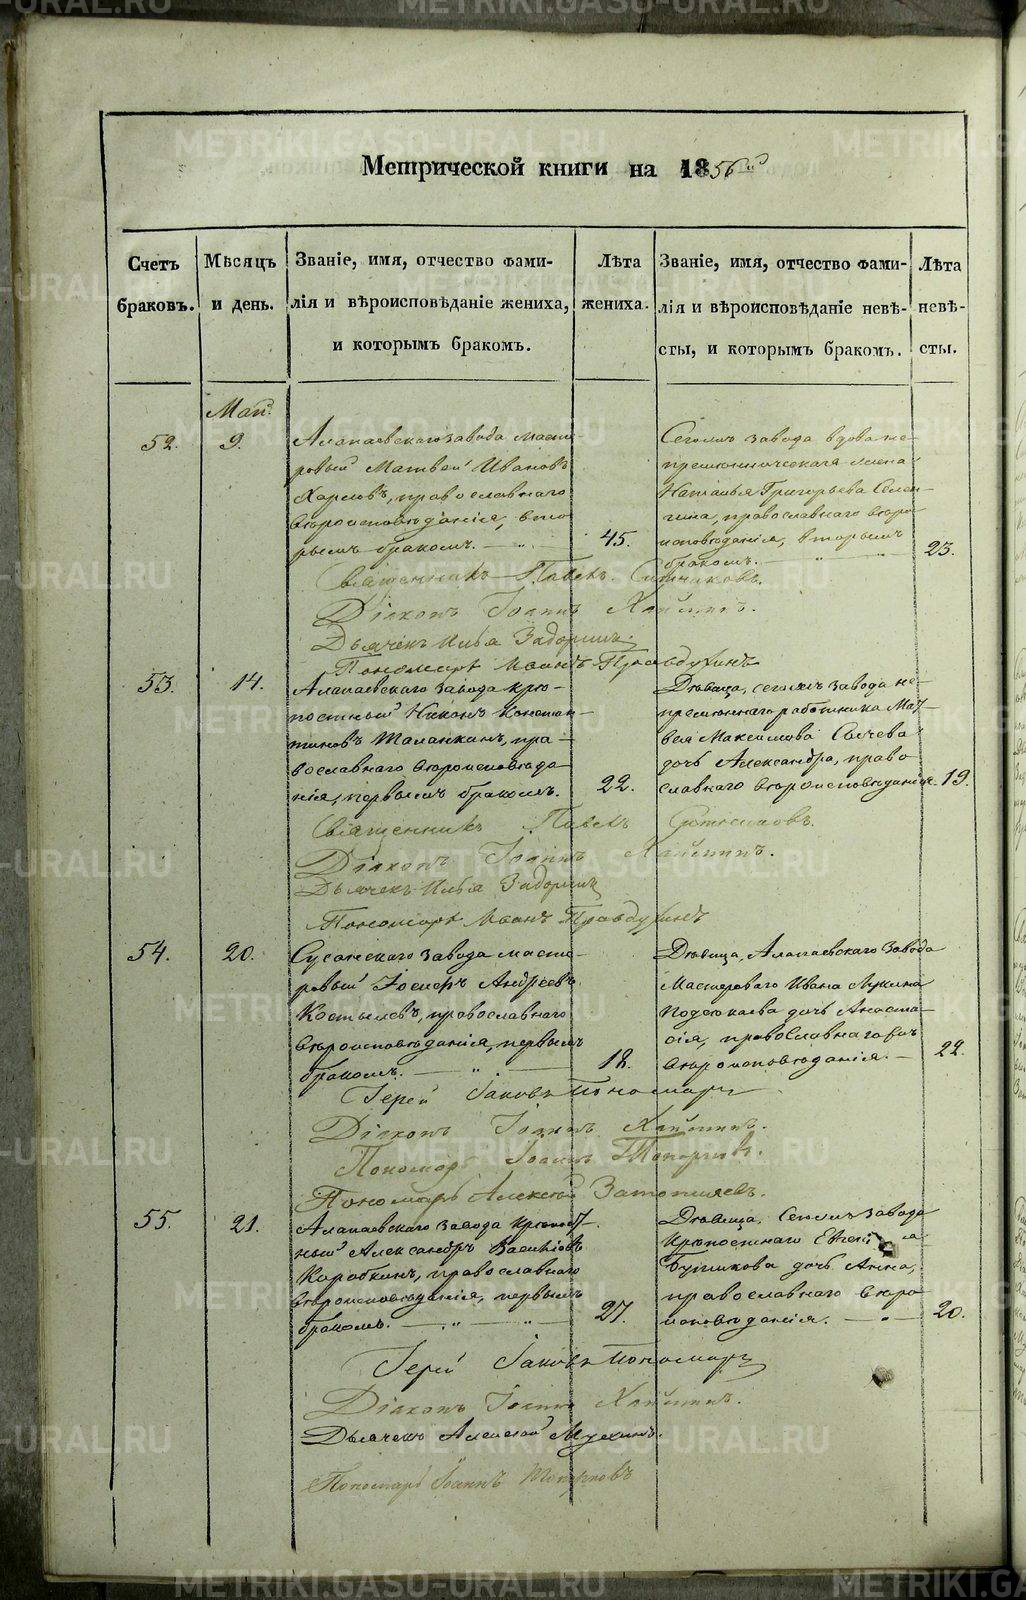 METRIKI.GASO-URAL.RU
Метрической книги на 1856й
Счетъ
браковъ.
Мѣсяцъ
и день.
Званіе, имя, отчество фами-
лія и вѣроисповѣданіе жениха,
и которымъ бракомъ.
Лѣта
жениха.
Званіе, имя, отчество фами-
лія и вѣроисповѣданіе невѣ-
сты, и которымъ бракомъ.
Лѣта
невѣ-
сты.
Май.
52.
9.
Алапаевскаго завода масте-
ровый Матвей Ивановъ
Харловъ, православнаго
вѣроисповѣданія, вто
рымъ бракомъ.
45.
Сегожъ завода вдова не-
премѣнническая жена
Наталья Григорьева
православнаго вѣро
исповѣданія, вторымъ
бракомъ.
23.
Священникъ Павелъ
Діаконъ Іоаннъ
Дьячекъ Илья Задоринъ.
Пономарь Иванъ Правдухинъ
53.
14.
Алапаевскаго завода крѣ-
постный Никонъ Констан-
тиновъ Таланкинъ, пра-
вославнаго вѣроисповѣда
нія, первымъ бракомъ.
22.
Дѣвица, сегожъ завода не-
премѣннаго работника Мат-
вея Максимова Сычева
дочь Александра, право
славнаго вѣроисповѣданія.
19.
Священникъ Павелъ
Діаконъ Іоаннъ
Дьячекъ Илья Задоринъ
Пономарь Иванъ Правдухинъ
54.
20.
Сусанскаго завода масте-
ровый Іосифъ Андреевъ
Костылевъ, православнаго
вѣроисповѣданія, первымъ
бракомъ.
18.
Дѣвица, Алапаевскаго завода
Мастероваго Ивана Лукина
Подкокаева дочь Анаста-
сія, православнаго
вѣроисповѣданія.
22.
Іерей Іаковъ Пономаревъ
Діаконъ Іоаннъ
Пономарь Іоаннъ Топорковъ.
Пономарь Алексѣй Затопляевъ.
55.
21.
Алапаевскаго завода крѣпост-
ный Александръ Васильевъ
Карабкинъ, православнаго
вѣроисповѣданія, первымъ
бракомъ.
27.
Дѣвица, Сегожъ завода
Крѣпостнаго
Бушкова дочь Анна,
православнаго вѣро
исповѣданія.
20.
Іерей Іаковъ Пономаревъ
Діаконъ Іоаннъ
Дьячекъ Алексей Мухинъ.
Пономарь Іоаннъ Топорковъ